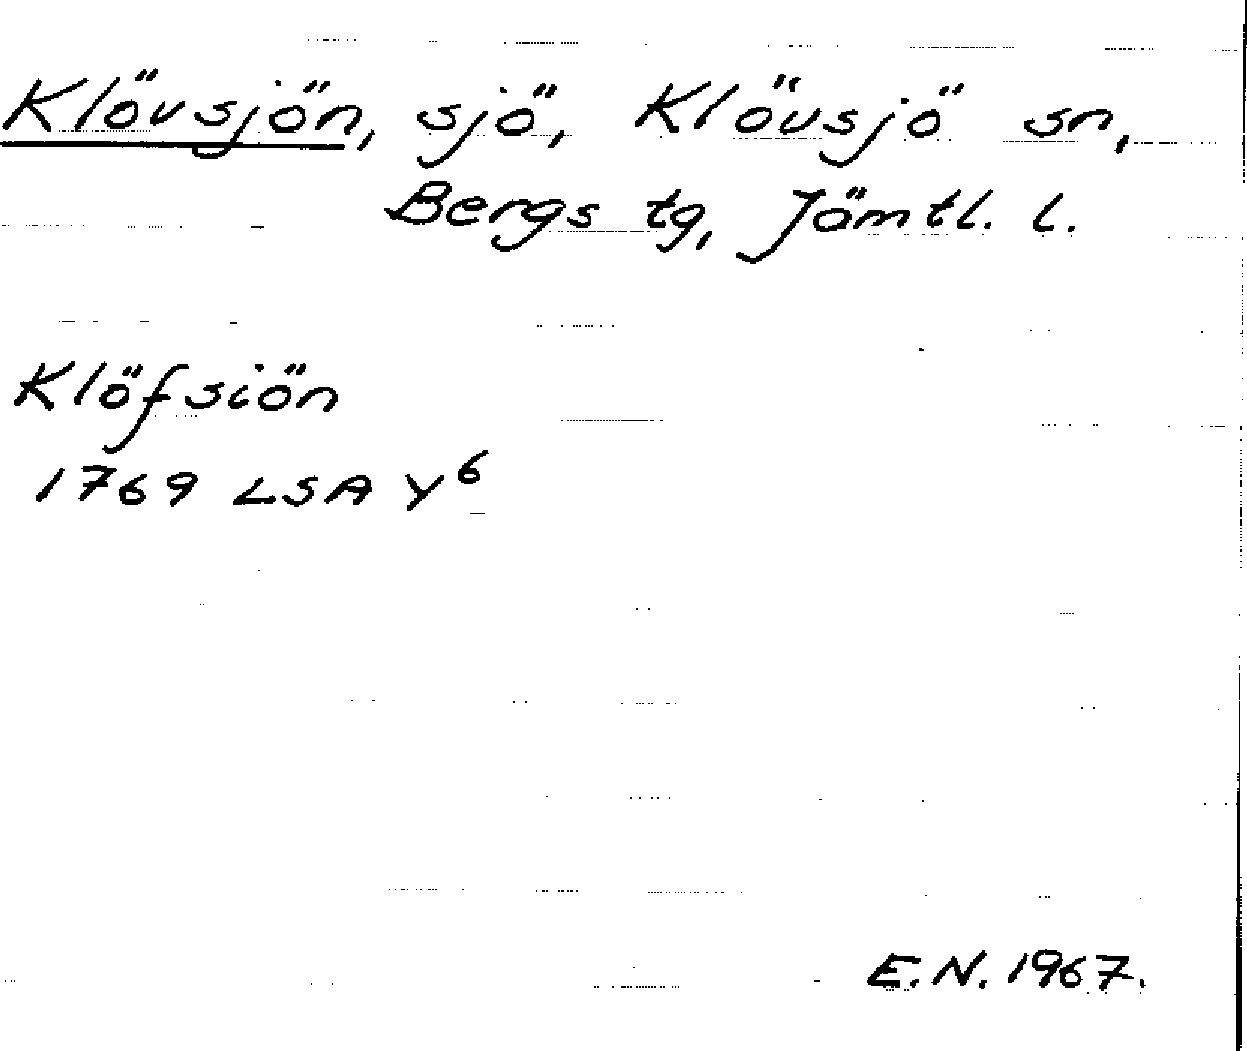 Klövsjön, sjö, Klövsjö sn,
Bergs tg, Jämtl. l.
Klöfsiön
1769 LSA Y⁶
E.N. 1967.